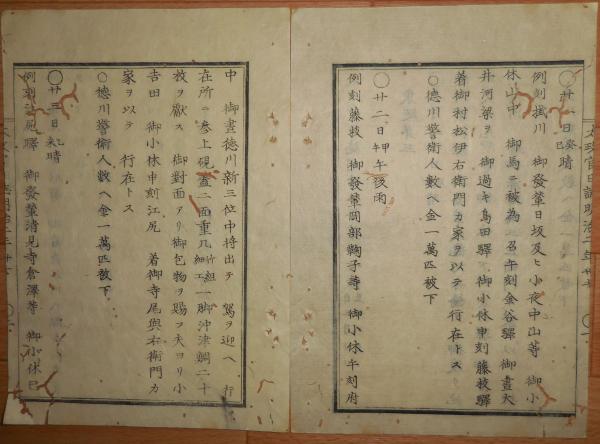 太政官日誌明治
〇廿一日癸巳晴
例刻掛川　御發輦日坂及ヒ小夜中山等　御小
休山中　御馬ニ被為　召午刻金谷驛　御晝大
井河梁ヲ　御過キ島田驛　御小休申刻藤枝驛
着御村松伊右衛門カ家ヲ以テ　行在トス
〇徳川警衛人數ヘ金一萬匹被下
〇廿二日甲午後雨
例刻藤枝　御發輦岡部鞠子等　御小休午刻府
中　御晝徳川新三位中将出テ　駕ヲ迎ヘ　行
在所ニ参上硯蓋二面重几竹組細工一脚沖津鯛二十
枚ヲ獻ス　御對面アリ御包物ヲ賜フ夫ヨリ小
吉田　御小休申刻江尻　着御寺尾與右衛門カ
家ヲ以テ　行在トス
〇徳川警衛人數ヘ金一萬匹被下
〇廿三日乙未晴
例刻江尻驛　御發輦清見寺倉澤等　御小休巳